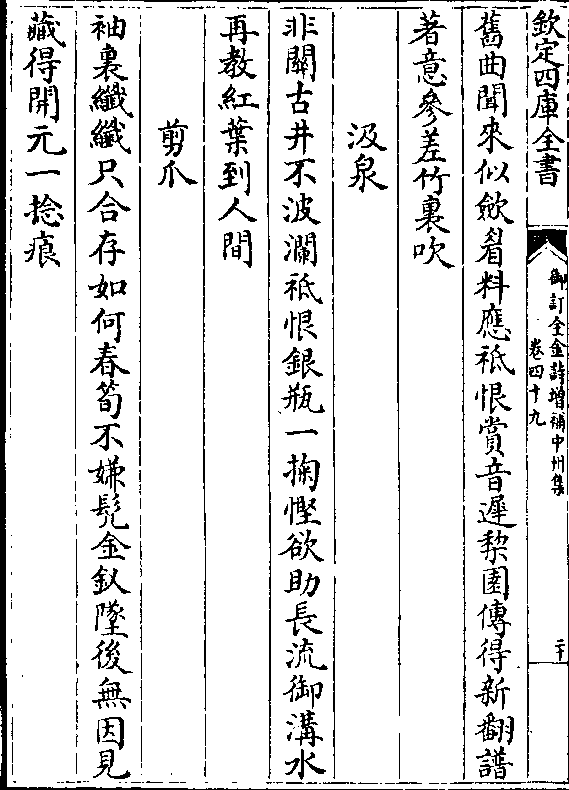 欽定四庫全書
御訂全金詩增補中州集
卷四十九
二十
舊曲聞來似斂眉料應祗恨賞音遲棃園傳得新翻譜
著意參差竹裏吹
汲泉
非關古井不波瀾祗恨銀瓶一掬慳欲助長流御溝水
再教紅葉到人間
剪爪
袖裏纖纖只合存如何春筍不嫌髠金釵墜後無因見
藏得開元一捻痕